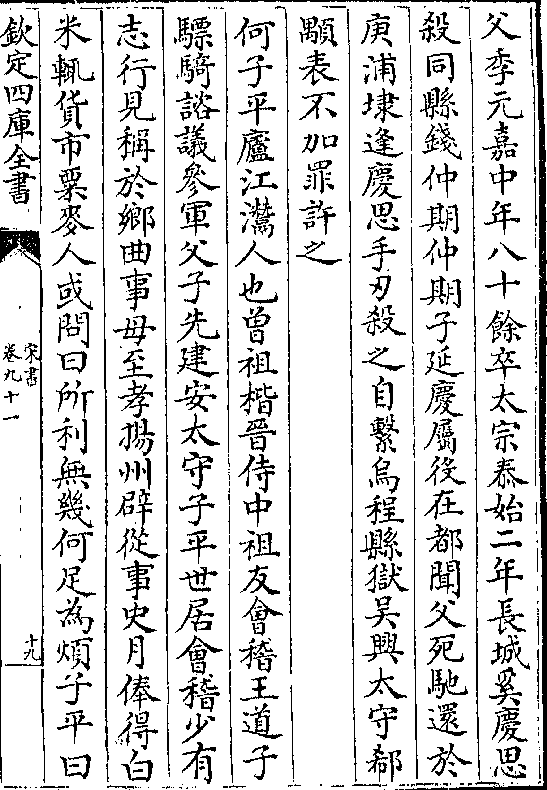 父季元嘉中年八十餘卒太宗泰始二年長城奚慶思
殺同縣錢仲期仲期子延慶屬役在都聞父死馳還於
庚浦埭逢慶思手刃殺之自繫烏程縣獄吳興太守郗
顒表不加罪許之
何子平廬江灊人也曾祖楷晉侍中祖友會稽王道子
驃騎諮議參軍父子先建安太守子平世居會稽少有
志行見稱於鄉曲事母至孝揚州辟從事史月俸得白
米輒貨市粟麥人或問曰所利無幾何足為煩子平曰
欽定四庫全書
宋書
卷九十一
十九